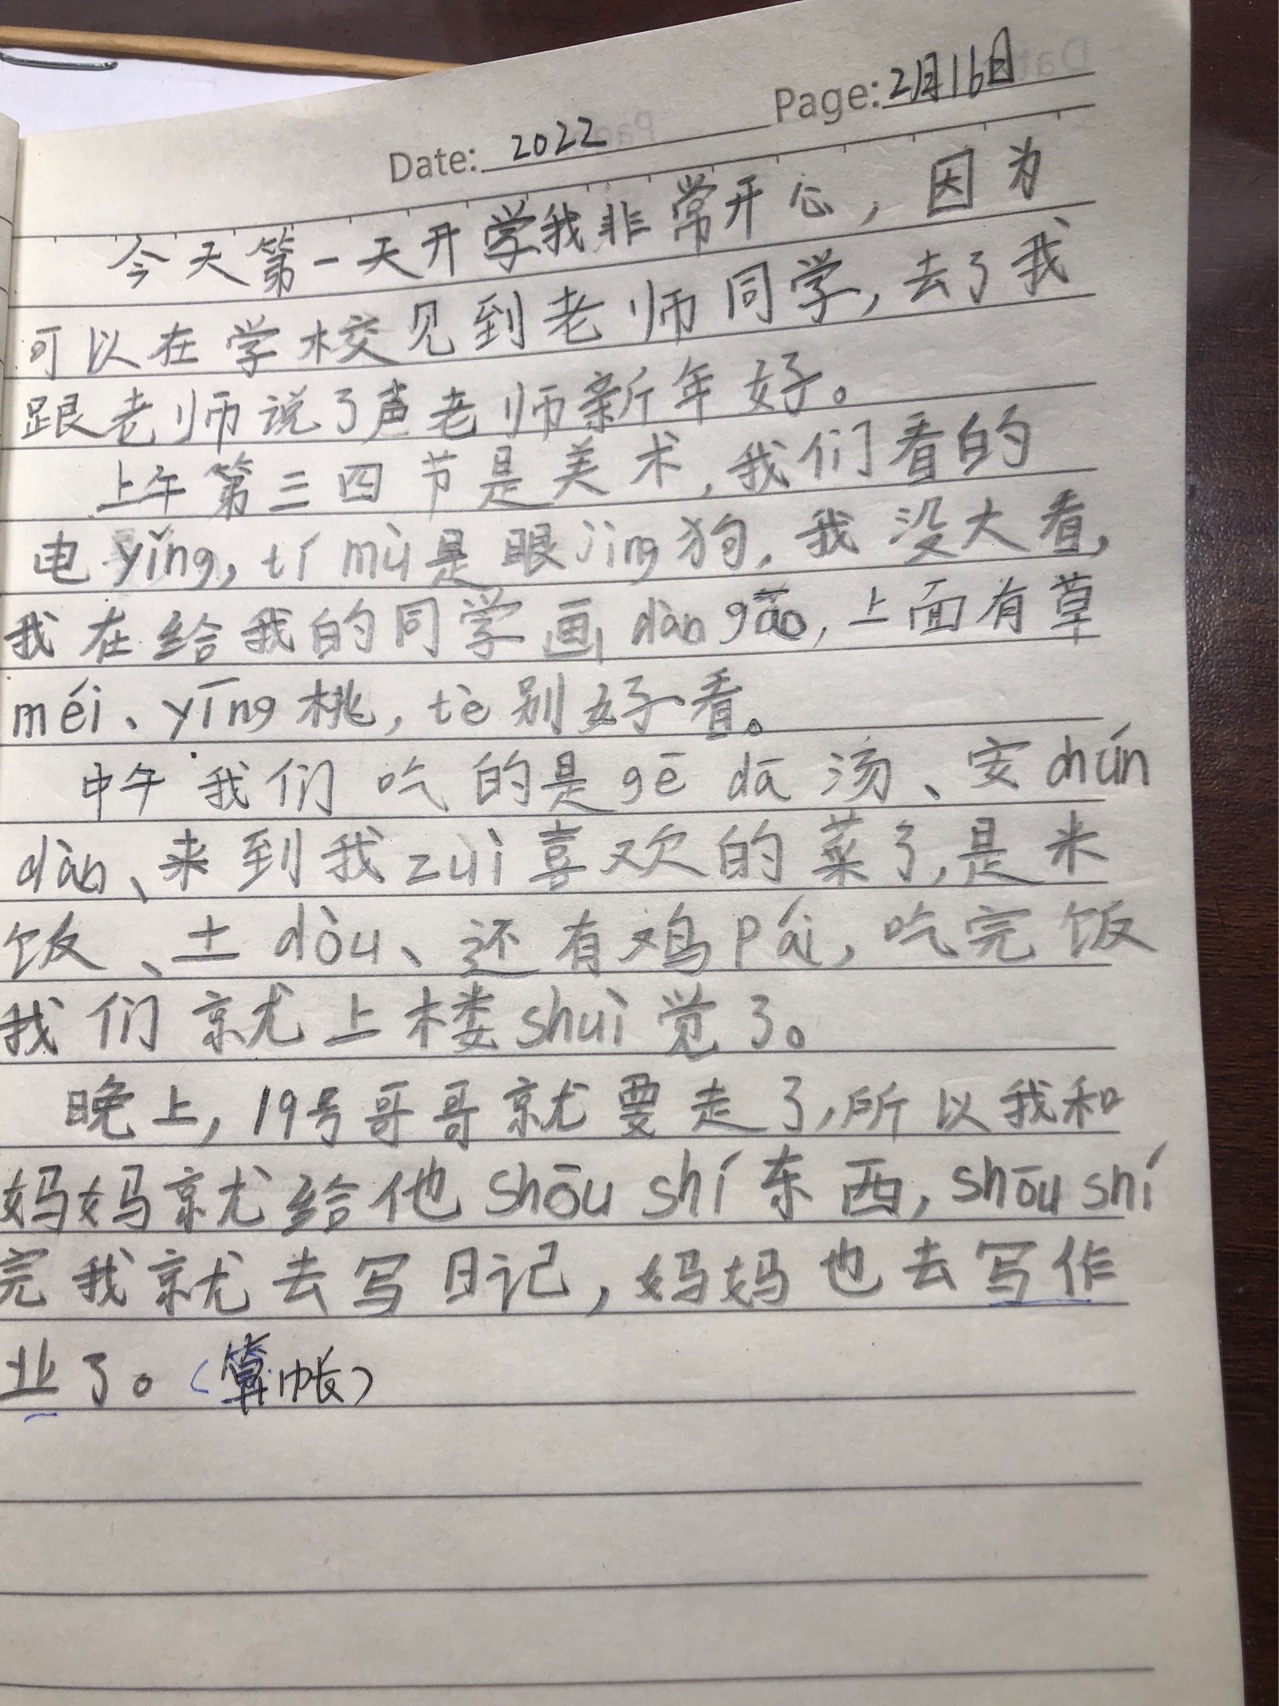 Date: 2022 Page: 2月16日
今天第一天开学我非常开心，因为
可以在学校见到老师同学，去了我
跟老师说了声老师新年好。
上午第三四节是美术，我们看的
电yǐng，tí mù是眼jing狗，我没大看，
我在给我的同学画dàn gāo，上面有草
méi、yīng桃，tè别好看。
中午我们吃的是gē dā汤、安chún
dàn、来到我zuì喜欢的菜了，是米
饭、土dòu、还有鸡pái，吃完饭
我们就上楼shuì觉了。
晚上，19号哥哥就要走了，所以我和
妈妈就给他shōu shí东西，shōu shí
完我就去写日记，妈妈也去写作
业了。（算帐）